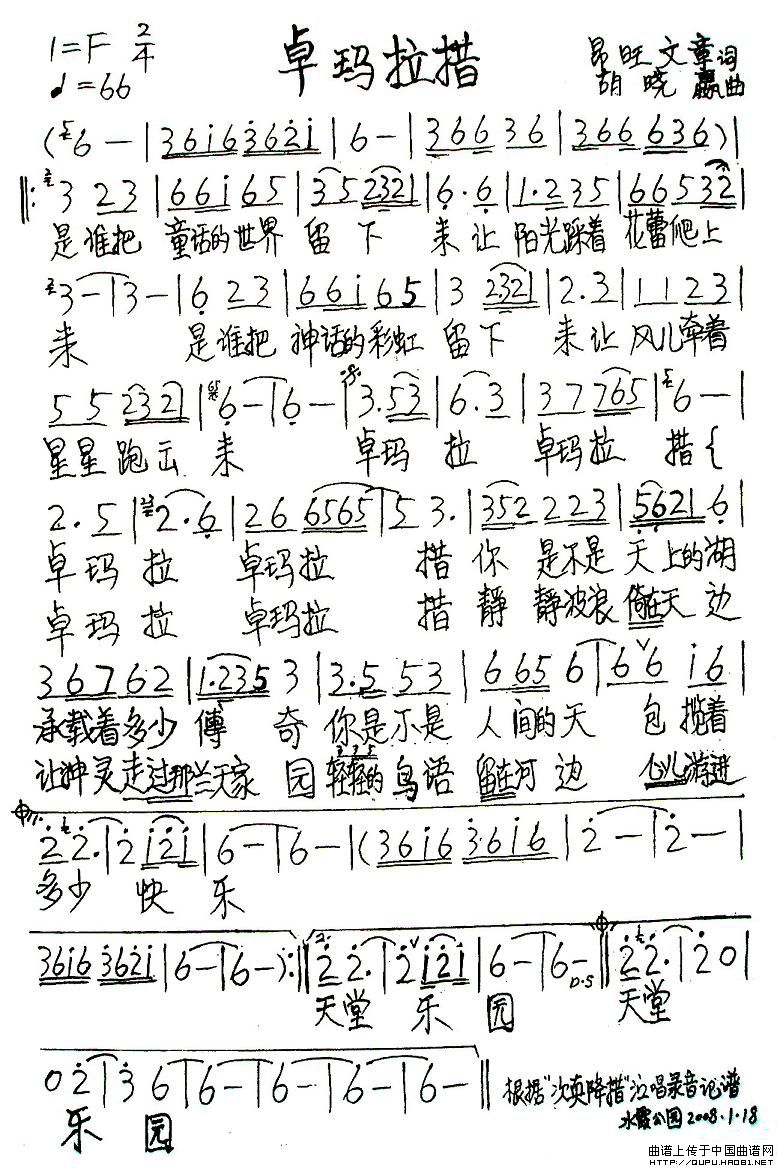 1=F 2/4
♩=66
卓玛拉措
昂旺文章词
胡晓嬴曲
(6 — | 3 6 i 6 3 6 2 i | 6 — | 3 6 6 3 6 | 3 6 6 6 3 6) |
‖: 3 2 3 | 6 6 i 6 5 | 3 5 2 3 2 1 | 6 · 6 | 1 · 2 3 5 | 6 6 5 3 2 |
是谁把 童话的世界 留 下 来 让 阳光踩着 花蕾爬上
3 — | 3 — | 6 2 3 | 6 6 i 6 5 | 3 2 3 2 1 | 2 . 3 | 1 1 2 3 |
来 是谁把 神话的彩虹 留 下 来 让 风儿牵着
5 5 2 3 2 1 | 6 — | 6 — | 3 . 5 3 | 6 . 3 | 3 7 7 6 5 | 6 — |
星星跑出来 卓玛 拉 卓玛拉 措 {
2 . 5 | 2 · 6 | 2 6 6 5 6 5 | 5 3 . | 3 5 2 2 2 3 | 5 6 2 1 6 |
卓玛 拉 卓玛拉 措 你 是不是 天上的湖
卓玛 拉 卓玛拉 措 静 静波浪 倚在天 边
3 6 7 6 2 | 1 . 2 3 5 3 | 3 . 5 5 3 | 6 6 5 6 | 6 6 i 6 |
承载着多少 傳 奇 你是不是 人间的天 包 揽着
让神灵走过那兰天家 园 轻轻的 鸟语 留在河 边 心儿游进
2 2 . | 2 i 2 i | 6 — | 6 — | (3 6 i 6 3 · 6 i 6 | 2 — | 2 — |
多少 快 乐
3 6 i 6 3 6 2 i | 6 — | 6 — ) :‖ 2. 2 2 . | 2 i 2 i | 6 — | 6 — D.S ‖ 2 2 . | 2 0 |
天堂 乐 园 天堂
0 2 | 3 6 | 6 — | 6 — | 6 — | 6 — | 6 — ‖
根据"次卖降措"泣唱录音记谱
乐 园
水霞公园 2008.1.18
曲谱上传于中国曲谱网
HTTP://QUPU.HAO81.NET